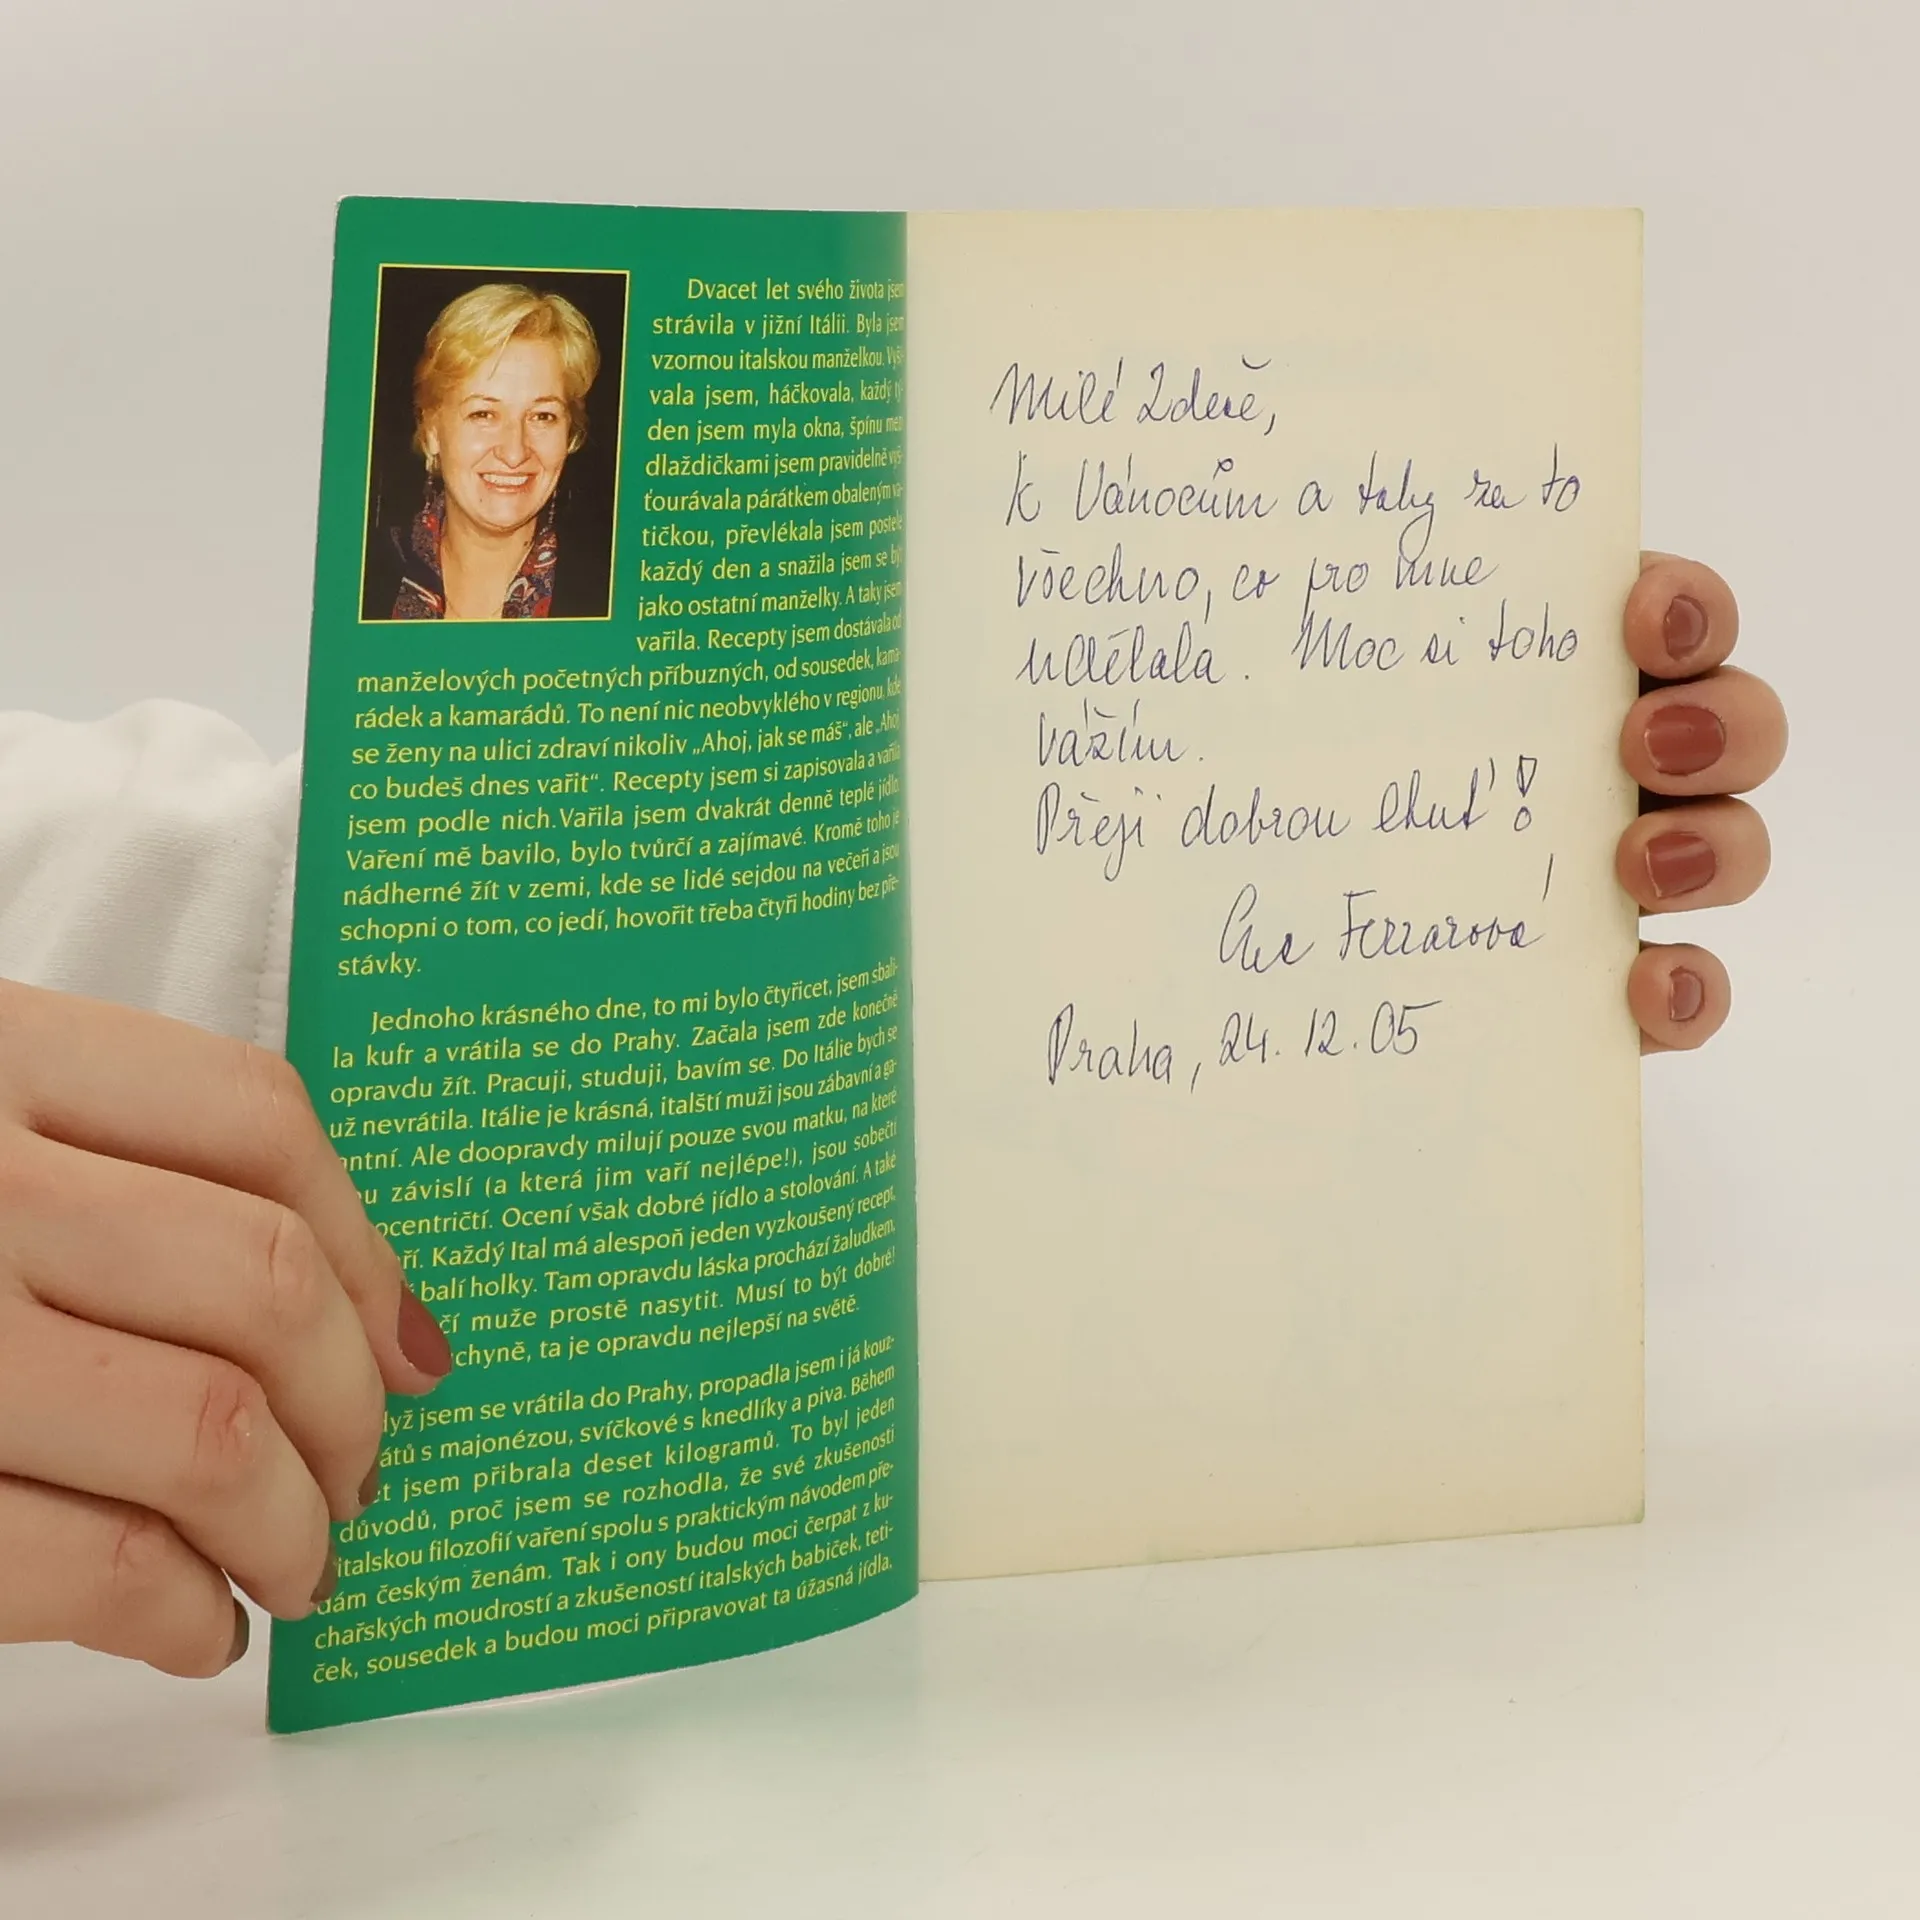 Dvacet let svého života jsem
strávila v jižní Itálii. Byla jsem
vzornou italskou manželkou. Vyší-
vala jsem, háčkovala, každý tý-
den jsem myla okna, špínu mezi
dlaždičkami jsem pravidelně vyš-
ťourávala párátkem obaleným va-
tičkou, převlékala jsem postele
každý den a snažila jsem se být
jako ostatní manželky. A taky jsem
vařila. Recepty jsem dostávala od
manželových početných příbuzných, od sousedek, kama-
rádek a kamarádů. To není nic neobvyklého v regionu, kde
se ženy na ulici zdraví nikoliv „Ahoj, jak se máš“, ale „Ahoj
co budeš dnes vařit“. Recepty jsem si zapisovala a vařila
jsem podle nich. Vařila jsem dvakrát denně teplé jídlo.
Vaření mě bavilo, bylo tvůrčí a zajímavé. Kromě toho je
nádherné žít v zemi, kde se lidé sejdou na večeři a jsou
schopni o tom, co jedí, hovořit třeba čtyři hodiny bez pře-
stávky.
Jednoho krásného dne, to mi bylo čtyřicet, jsem sbali-
la kufr a vrátila se do Prahy. Začala jsem zde konečně
opravdu žít. Pracuji, studuji, bavím se. Do Itálie bych se
už nevrátila. Itálie je krásná, italští muži jsou zábavní a ga-
antní. Ale doopravdy milují pouze svou matku, na které
ou závislí (a která jim vaří nejlépe!), jsou sobečtí
ocentričtí. Ocení však dobré jídlo a stolování. A také
ří. Každý Ital má alespoň jeden vyzkoušený recept,
balí holky. Tam opravdu láska prochází žaludkem,
čí muže prostě nasytit. Musí to být dobré!
chyně, ta je opravdu nejlepší na světě.
dyž jsem se vrátila do Prahy, propadla jsem i já kouz-
átů s majonézou, svíčkové s knedlíky a piva. Během
et jsem přibrala deset kilogramů. To byl jeden
důvodů, proč jsem se rozhodla, že své zkušenosti
italskou filozofií vaření spolu s praktickým návodem pře-
dám českým ženám. Tak i ony budou moci čerpat z ku-
chařských moudrostí a zkušeností italských babiček, teti-
ček, sousedek a budou moci připravovat ta úžasná jídla.
Milé Zdeně,
k Vánocům a taky za to
všechno, co pro mne
udělala. Moc si toho
vážím.
Přeji dobrou chuť!
Eva Ferrarová
Praha, 24. 12. 05